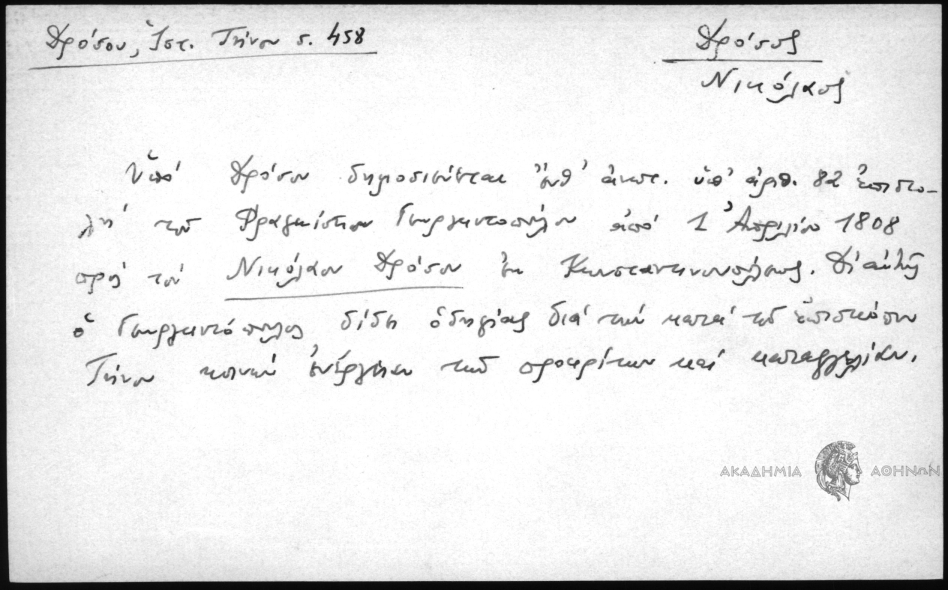 Δρόσου, Ἱστ. Τήνου σ. 458
Δρόσος
Νικόλαος
Ὑπό Δρόσου δημοσιεύεται ἔνθ' ἀνωτ. ὑπ' ἀριθ. 82 ἐπιστο-
λή τοῦ Φραγκίσκου Γεωργαντοπούλου ἀπό 1 Ἀπριλίου 1808
πρός τόν Νικόλαον Δρόσον ἐκ Κωνσταντινουπόλεως. Δι' αὐτῆς
ὁ Γεωργαντόπουλος δίδει ὁδηγίας διά τήν κατά τοῦ ἐπισκόπου
Τήνου κοινήν ἐνέργειαν τῶν προκρίτων καί καταγγελίαν.
ΑΚΑΔΗΜΙΑ ΑΘΗΝΩΝ